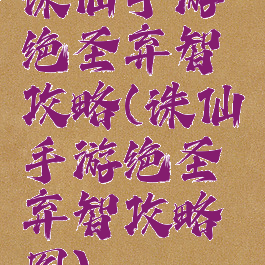 诛仙手游
绝圣弃智
攻略(诛仙
手游绝圣
弃智攻略
图)